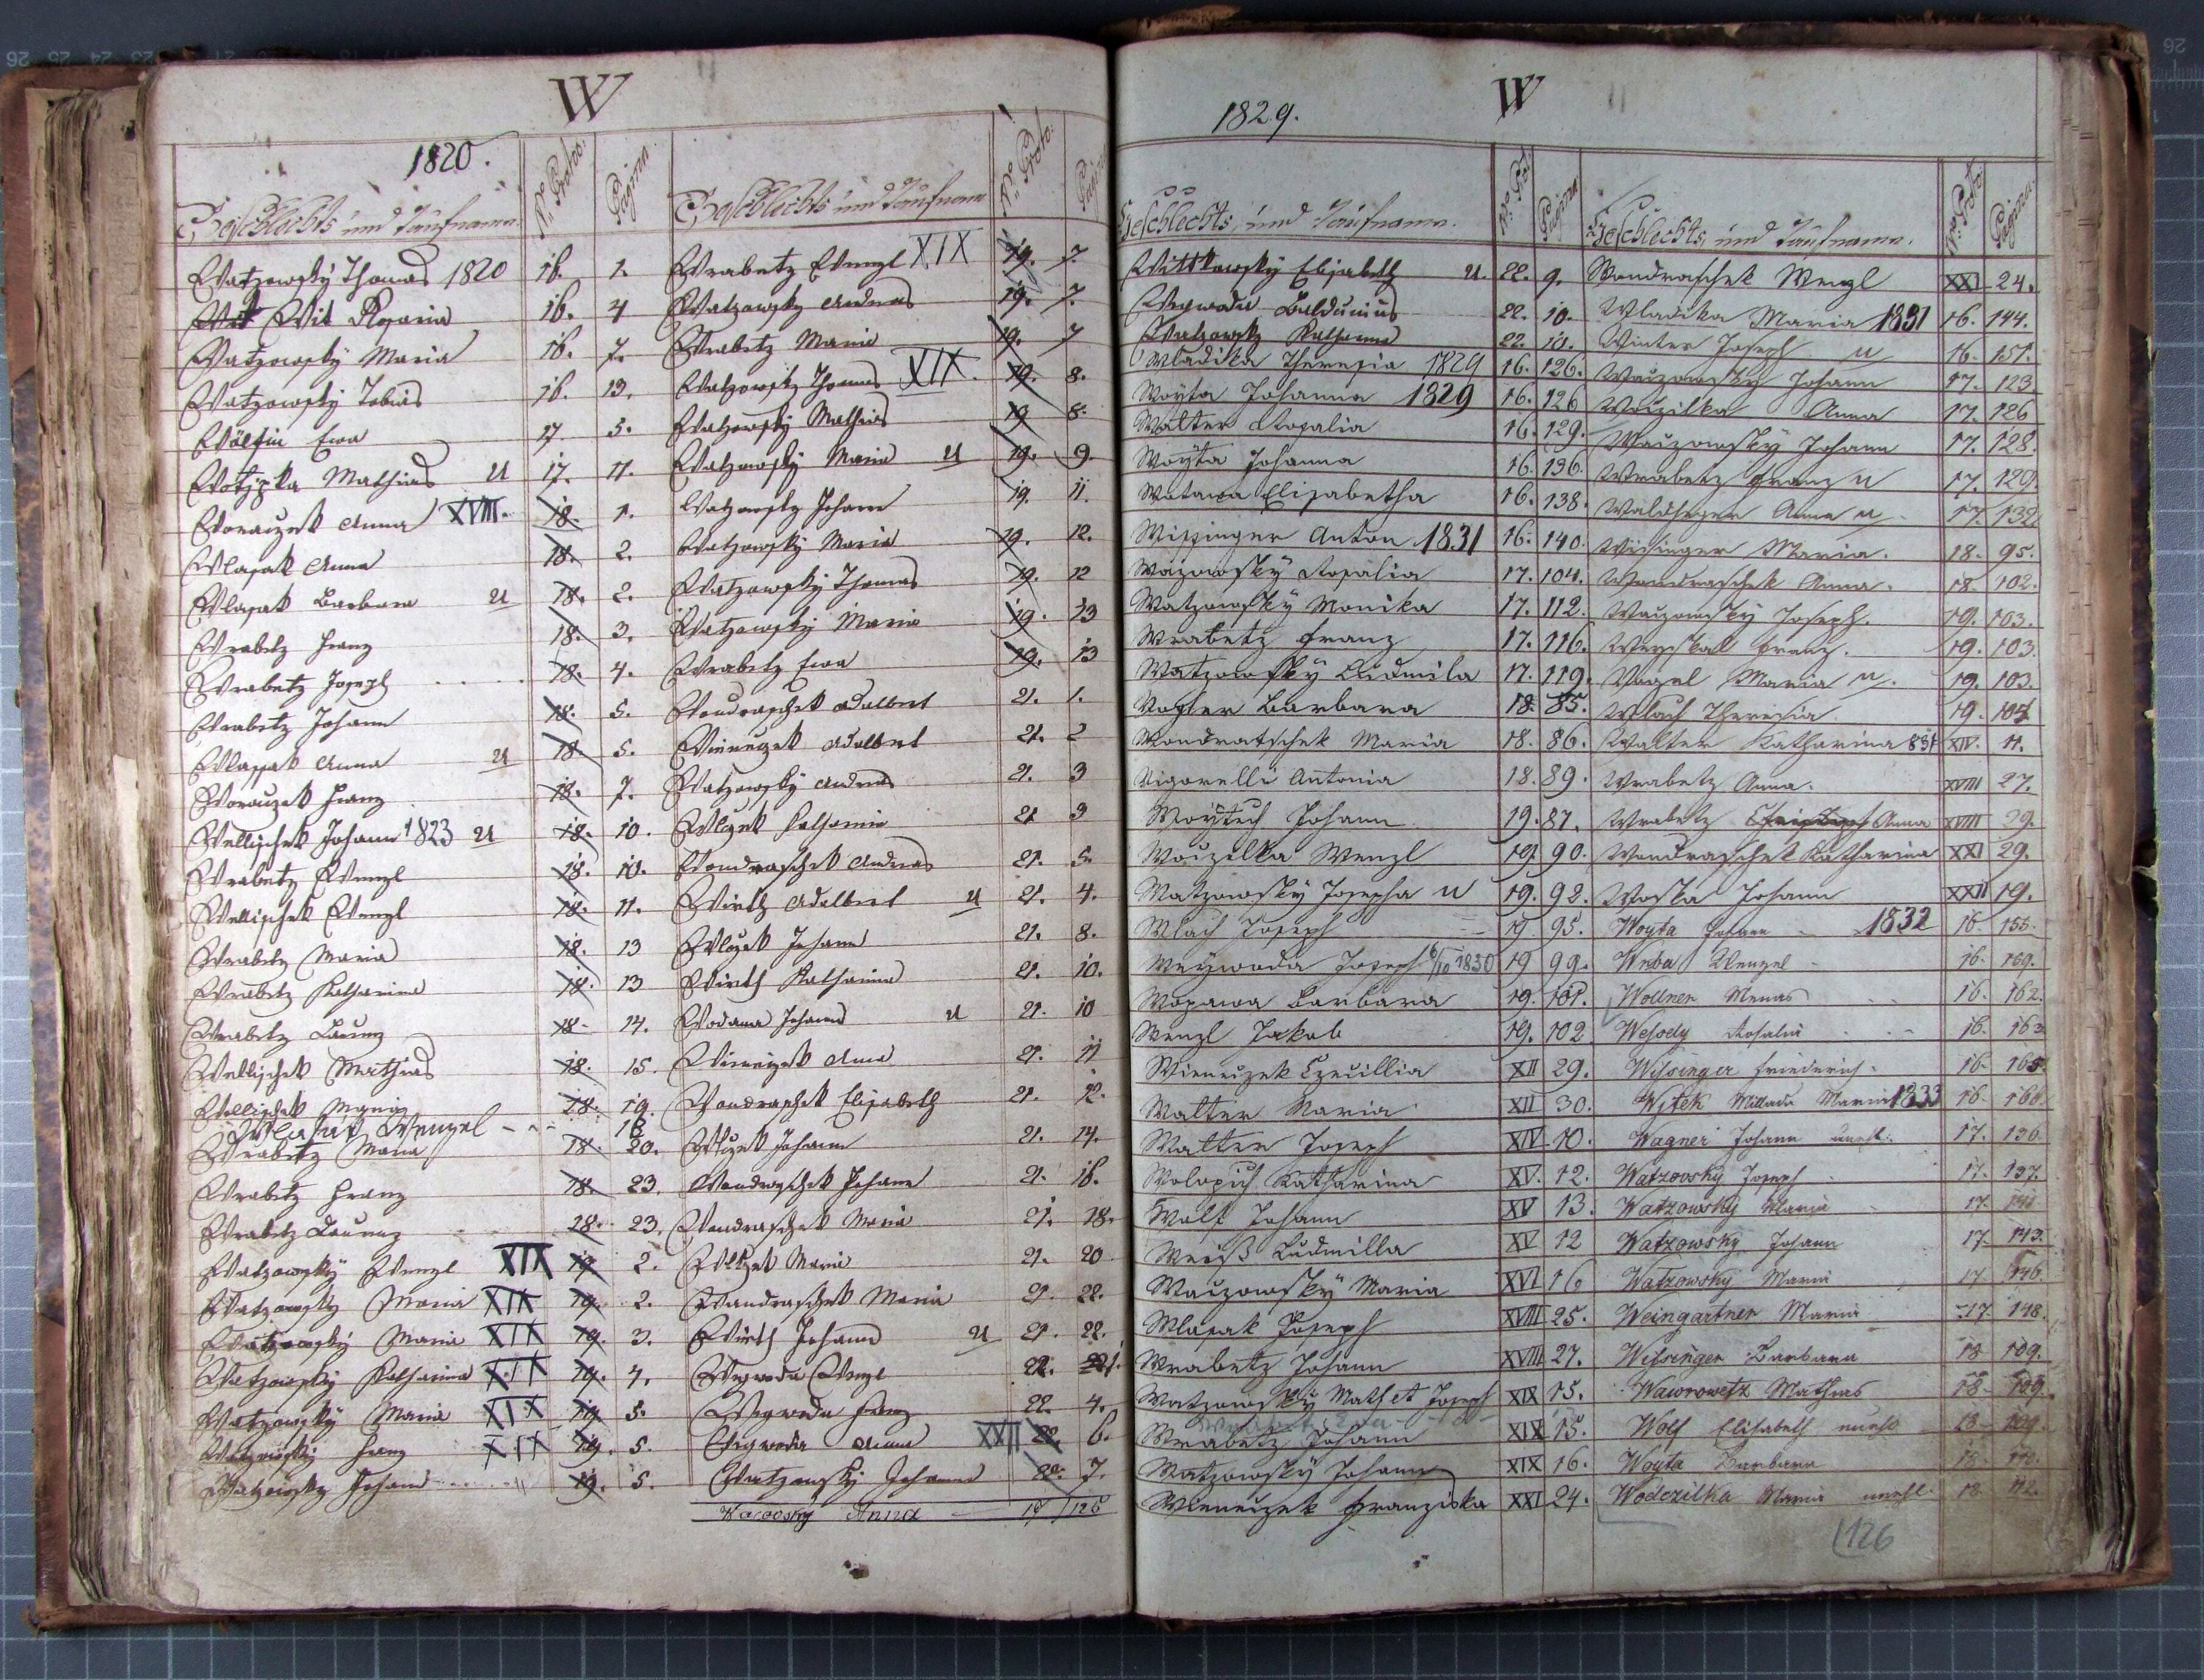 W
1820.
Geschlechts und Taufname
No. Proto.
Pagina
Watzowsky Thomas 1820 16. 1.
Wit Rosaria 16. 4
Watzowsky Maria 16. 7.
Watzowsky Tobias 16. 13.
Wölfin Ewa 17 5.
Wotipka Mathias U 17. 11.
Woraczek Anna XVIII. 18. 1.
Wlasak Anna 18. 2.
Wlasak Barbara U 18. 2.
Wrabetz Franz 18. 3.
Wrabetz Joseph 18. 4.
Wrabetz Johann 18. 5.
Wlassak Anna U 18 5.
Woraczek Franz 18. 7.
Wellischek Johann 1823 U 18. 10.
Wrabetz Wenzl 18. 10.
Wellischek Wenzl 18. 11.
Wrabetz Maria 18. 13
Wrabetz Katharina 18. 13
Wrabetz Laurenz 18. 14.
Wellischek Mathias 18. 15.
Wellischek Maria 18. 19.
Wlasak Wenzel 18
Wrabetz Maria 18. 20.
Wrabetz Franz 18. 23.
Wrabetz Laurenz 18. 23.
Watzowsky Wenzl XIX 19. 2.
Watzowsky Maria XIX 19. 2.
Watzowsky Maria XIX 19. 3.
Watzowsky Katharina XIX 19. 4.
Watzowsky Maria XIX 19. 5.
Watzowsky Franz XIX 19. 5.
Watzowsky Johann 19. 5.
Geschlechts und Taufname
No. Proto.
Pagina
Wrabetz Wenzl XIX 19. 7.
Watzowsky Andreas 19. 7.
Wrabetz Maria 19. 7
Watzowsky Thomas XIX. 19. 8.
Watzowsky Mathias 19 8.
Watzowsky Maria U 19. 9.
Watzowsky Johann 19. 11.
Watzowsky Maria 19. 12.
Watzowsky Thomas 19. 12
Watzowsky Maria 19. 13
Wrabetz Ewa 19. 13
Wondraschek Adalbert 21. 1.
Wieneczek Adalbert 21. 2
Watzowsky Andreas 21. 3
Wlczek Katharina 21 3
Wondraschek Andreas 21. 5.
Wirth Adalbert U 21. 4.
Wlczek Johann 21. 8.
Wirth Katharina 21. 10.
Wodama Johann U 21. 10
Wieneczek Anna 21. 11
Wondraschek Elisabeth 21. 12.
Wlczek Johann 21. 14.
Wondraschek Johann 21. 16.
Wondraschek Maria 21. 18.
Wlczek Maria 21. 20
Wandraschek Maria 21. 22.
Wirth Johann U 21. 22.
Weywoda Wenzl 22.
Weywoda Franz 22. 4.
Weywoda Anna XXII 22. 6.
Watzowsky Johann 22. 7.
Anna 125
W
1829.
Geschlechts, und Taufname.
No. Prot.
Pagina
Wittkowsky Elisabeth U. 22. 9.
Weywoda Baldunius 22. 10.
Watzowsky Katharina 22. 10.
Wladika Theresia 1829 16. 126.
Woyta Johanna 1829 16. 126
Walter Rosalia 16. 129.
Woyta Johanna 16. 136.
Watawa Elisabetha 16. 138.
Wissinger Anton 1831 16. 140.
Waczowsky Rosalia 17. 104.
Watzowsky Monika 17. 112.
Wrabetz Franz 17. 116.
Watzowsky Ludmila 17. 119.
Vogler Barbara 18. 85.
Wondratschek Maria 18. 86.
Vigorelli Antonia 18. 89.
Woytech Johann 19. 87.
Woczelka Wenzl 19. 90.
Watzowsky Josepha U 19. 92.
Wlach Joseph 19. 95.
Weywoda Joseph 1830 19 99.
Wopawa Barbara 19. 101.
Wenzl Jakob 19. 102
Wieneczek Czecillia XII 29.
Walter Maria XII 30.
Walter Joseph XIV 10.
Wolopich Katharina XV. 12.
Wolf Johann XV 13.
Weiß Ludmilla XV 12
Waczowsky Maria XVI 16
Wlasak Joseph XVIII 25.
Wrabetz Johann XVIII 27.
Watzowsky Math et Joseph XIX 15.
Wrabetz Johann XIX 15.
Watzowsky Johann XIX 16.
Wieneczek Franziska XXI 24.
Geschlechts, und Taufname.
No. Proto.
Pagina.
Wondraschek Wenzl XXI 24.
Wladika Maria 1831 16. 144.
Winter Joseph U 16. 151.
Waczowsky Johann 17. 123
Woczilka Anna 17. 126
Waczowsky Johann 17. 128.
Wrabetz Franz U 17. 129.
Waldheger Anna U 17. 132
Wisinger Maria. 18. 95.
Wondraschek Anna. 18. 102.
Waczowsky Joseph. 19. 103.
Weyskall Franz. 19. 103.
Vogel Maria U. 19. 103.
Wlach Theresia 19. 104
Walter Katharina 831 XIV. 11.
Wrabetz Anna. XVIII 27.
Wrabetz Anna XVIII 29.
Wondraschek Katharina XXI 29.
Woska Johann XXII 19.
Woyta Johann 1832 16. 155.
Wrba Wenzel 16. 159.
Wollner Menas 16. 162.
Wesoely Rosalia 16. 163
Wissinger Friederich 16. 165
Witek Millada Maria 1833 16. 166
Wagner Johann unehl. 17. 136
Watzovsky Joseph 17. 137.
Watzowsky Maria 17. 141
Watzowsky Johann 17 143.
Watzowsky Maria 17 146.
Weingartner Maria 17. 148.
Wissinger Barbara 18 109.
Wawrowetz Mathias 18 109.
Wolf Elisabeth unehl 18 109.
Woyta Barbara 18. 112.
Wodczilka Maria unehl. 18 112.
126